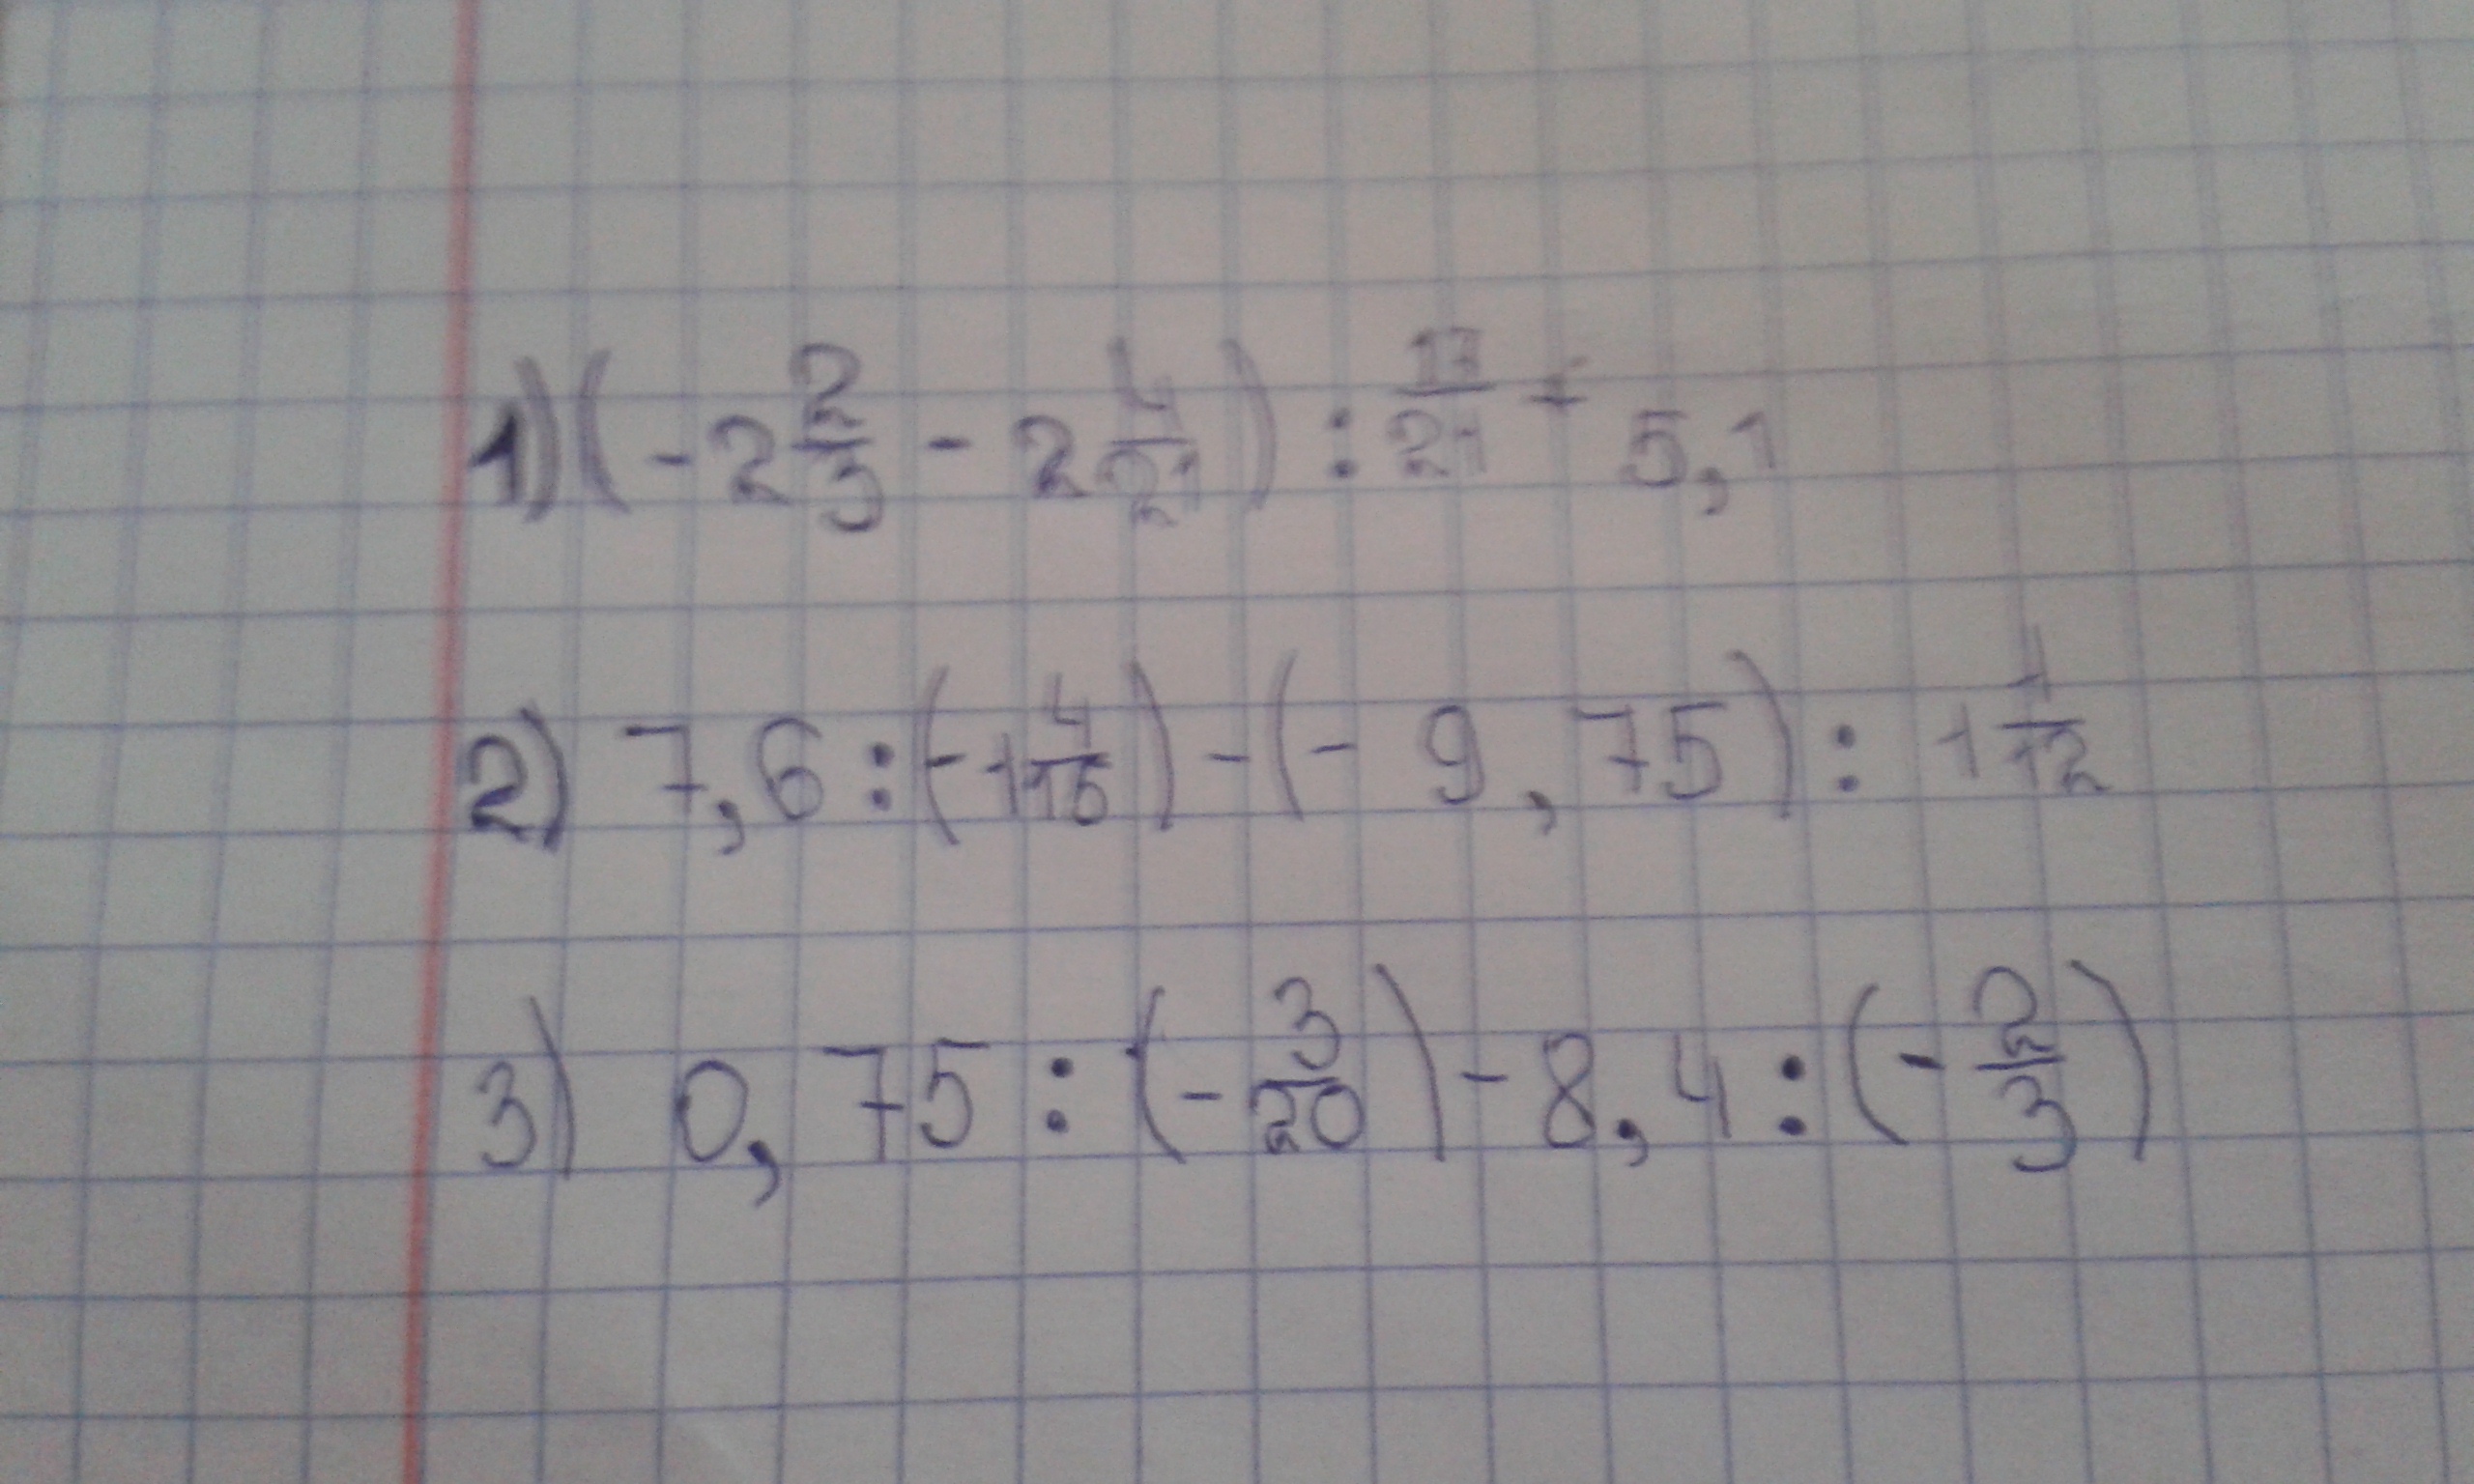 1) (-2 2/3 - 2 4/21) : 17/21 + 5,1
2) 7,6 : (-1 4/15) - (- 9,75) : 1 1/12
3) 0,75 : (- 3/20) - 8,4 : (- 2/3)